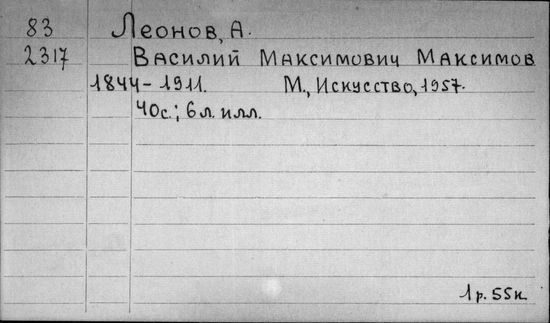 83 Леонов, А.
2317 Василий Максимович Максимов
1844-1911. М., Искусство, 1957.
40с.; 6 л. илл.
1р. 55к